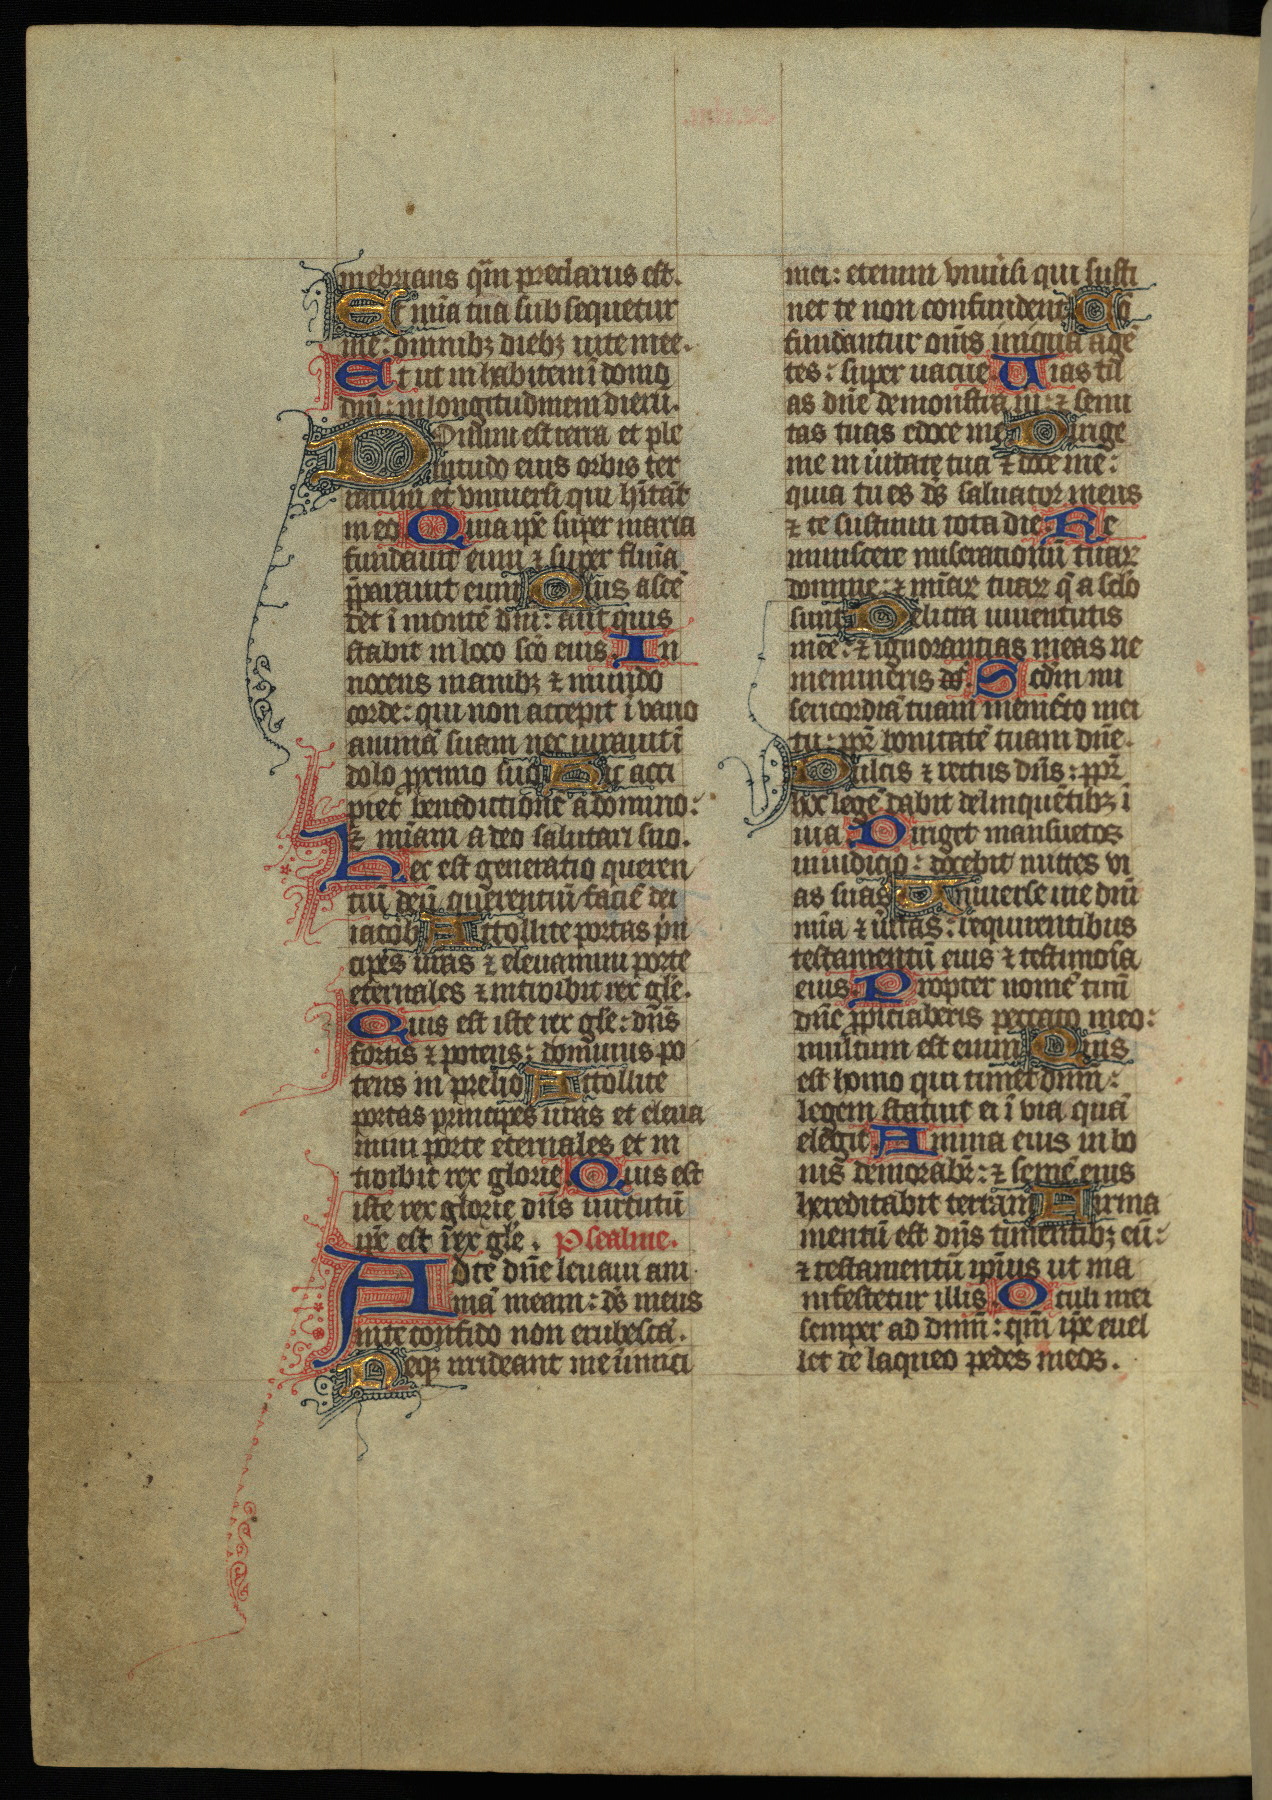 inebrians qm̄ preclarus est.
Et mīa tua subsequetur
me: omnibꝫ diebꝫ uite mee.
Et ut inhabitem ī domo
dn̄i: in longitudinem dierū.
Domini est terra et ple
nitudo eius orbis ter
rarum et vniuersi qui hītāt
in eo Quia ip̄e super maria
fundauit eum ⁊ super flumīa
p̄parauit eum Quis ascē
det ī montē dn̄i: aut quis
stabit in loco sc̄o eius In
nocens manibꝫ ⁊ mundo
corde: qui non accepit ī vano
animā suam nec iurauit ī
dolo proximo suo Hic acci
piet benedictionē a domino:
⁊ mīam a deo salutari suo.
Hec est generatio queren
tiū deū querentiū faciē dei
iacob Attollite portas p̄in
cipes vr̄as ⁊ eleuamini porte
eternales ⁊ introibit rex gl̄e.
Quis est iste rex gl̄e: dn̄s
fortis ⁊ potens: dominus po
tens in prelio Attollite
portas principes vr̄as et eleua
mini porte eternales et in
troibit rex glorie Quis est
iste rex glorie dn̄s uirtutū
ip̄e est rex gl̄e. Psealme.
Ad te dn̄e leuaui ani
mā meam: ds̄ meus
in te confido non erubescā.
Neqꝫ irrideant me inimici
mei: etenim vniūsi qui susti
net te non confundent̄ Cō
fundantur om̄s iniqua agē
tes: super uacue Uias tu
as dn̄e demonstra m̄: ⁊ semi
tas tuas edoce me Dirige
me in ūitate tua ⁊ doce me:
quia tu es ds̄ saluator meus
⁊ te sustinui tota die Re
miniscere miserationū tuaꝝ
domine: ⁊ mīaꝝ tuaꝝ q̄ a sc̄lo
sunt Delicta iuuentutis
mee: ⁊ ignorantias meas ne
memineris ds̄. Scdm̄ mi
sericordiā tuam memēto mei
tu: ppt̄ bonitatē tuam dn̄e.
Dulcis ⁊ rectus dn̄s: ppt̄
hoc legē dabit delinquētibꝫ ī
uia Diriget mansuetos
in iudicio: docebit mittes vi
as suas Uniuerse uie dn̄i
mīa ⁊ ūitas: requirentibus
testamentū eius ⁊ testimoīa
eius Propter nomē tuū
dn̄e p̄piciaberis peccato meo:
multum est enim Quis
est homo qui timet dn̄m:
legem statuit ei ī via quā
elegit Anima eius in bo
nis demorabr̄: ⁊ semē eius
hereditabit terram Firma
mentū est dn̄s timentibꝫ eū:
⁊ testamentū ip̄ius ut ma
nifestetur illis Oculi mei
semper ad dn̄m: qm̄ ip̄e euel
let de laqueo pedes meos.